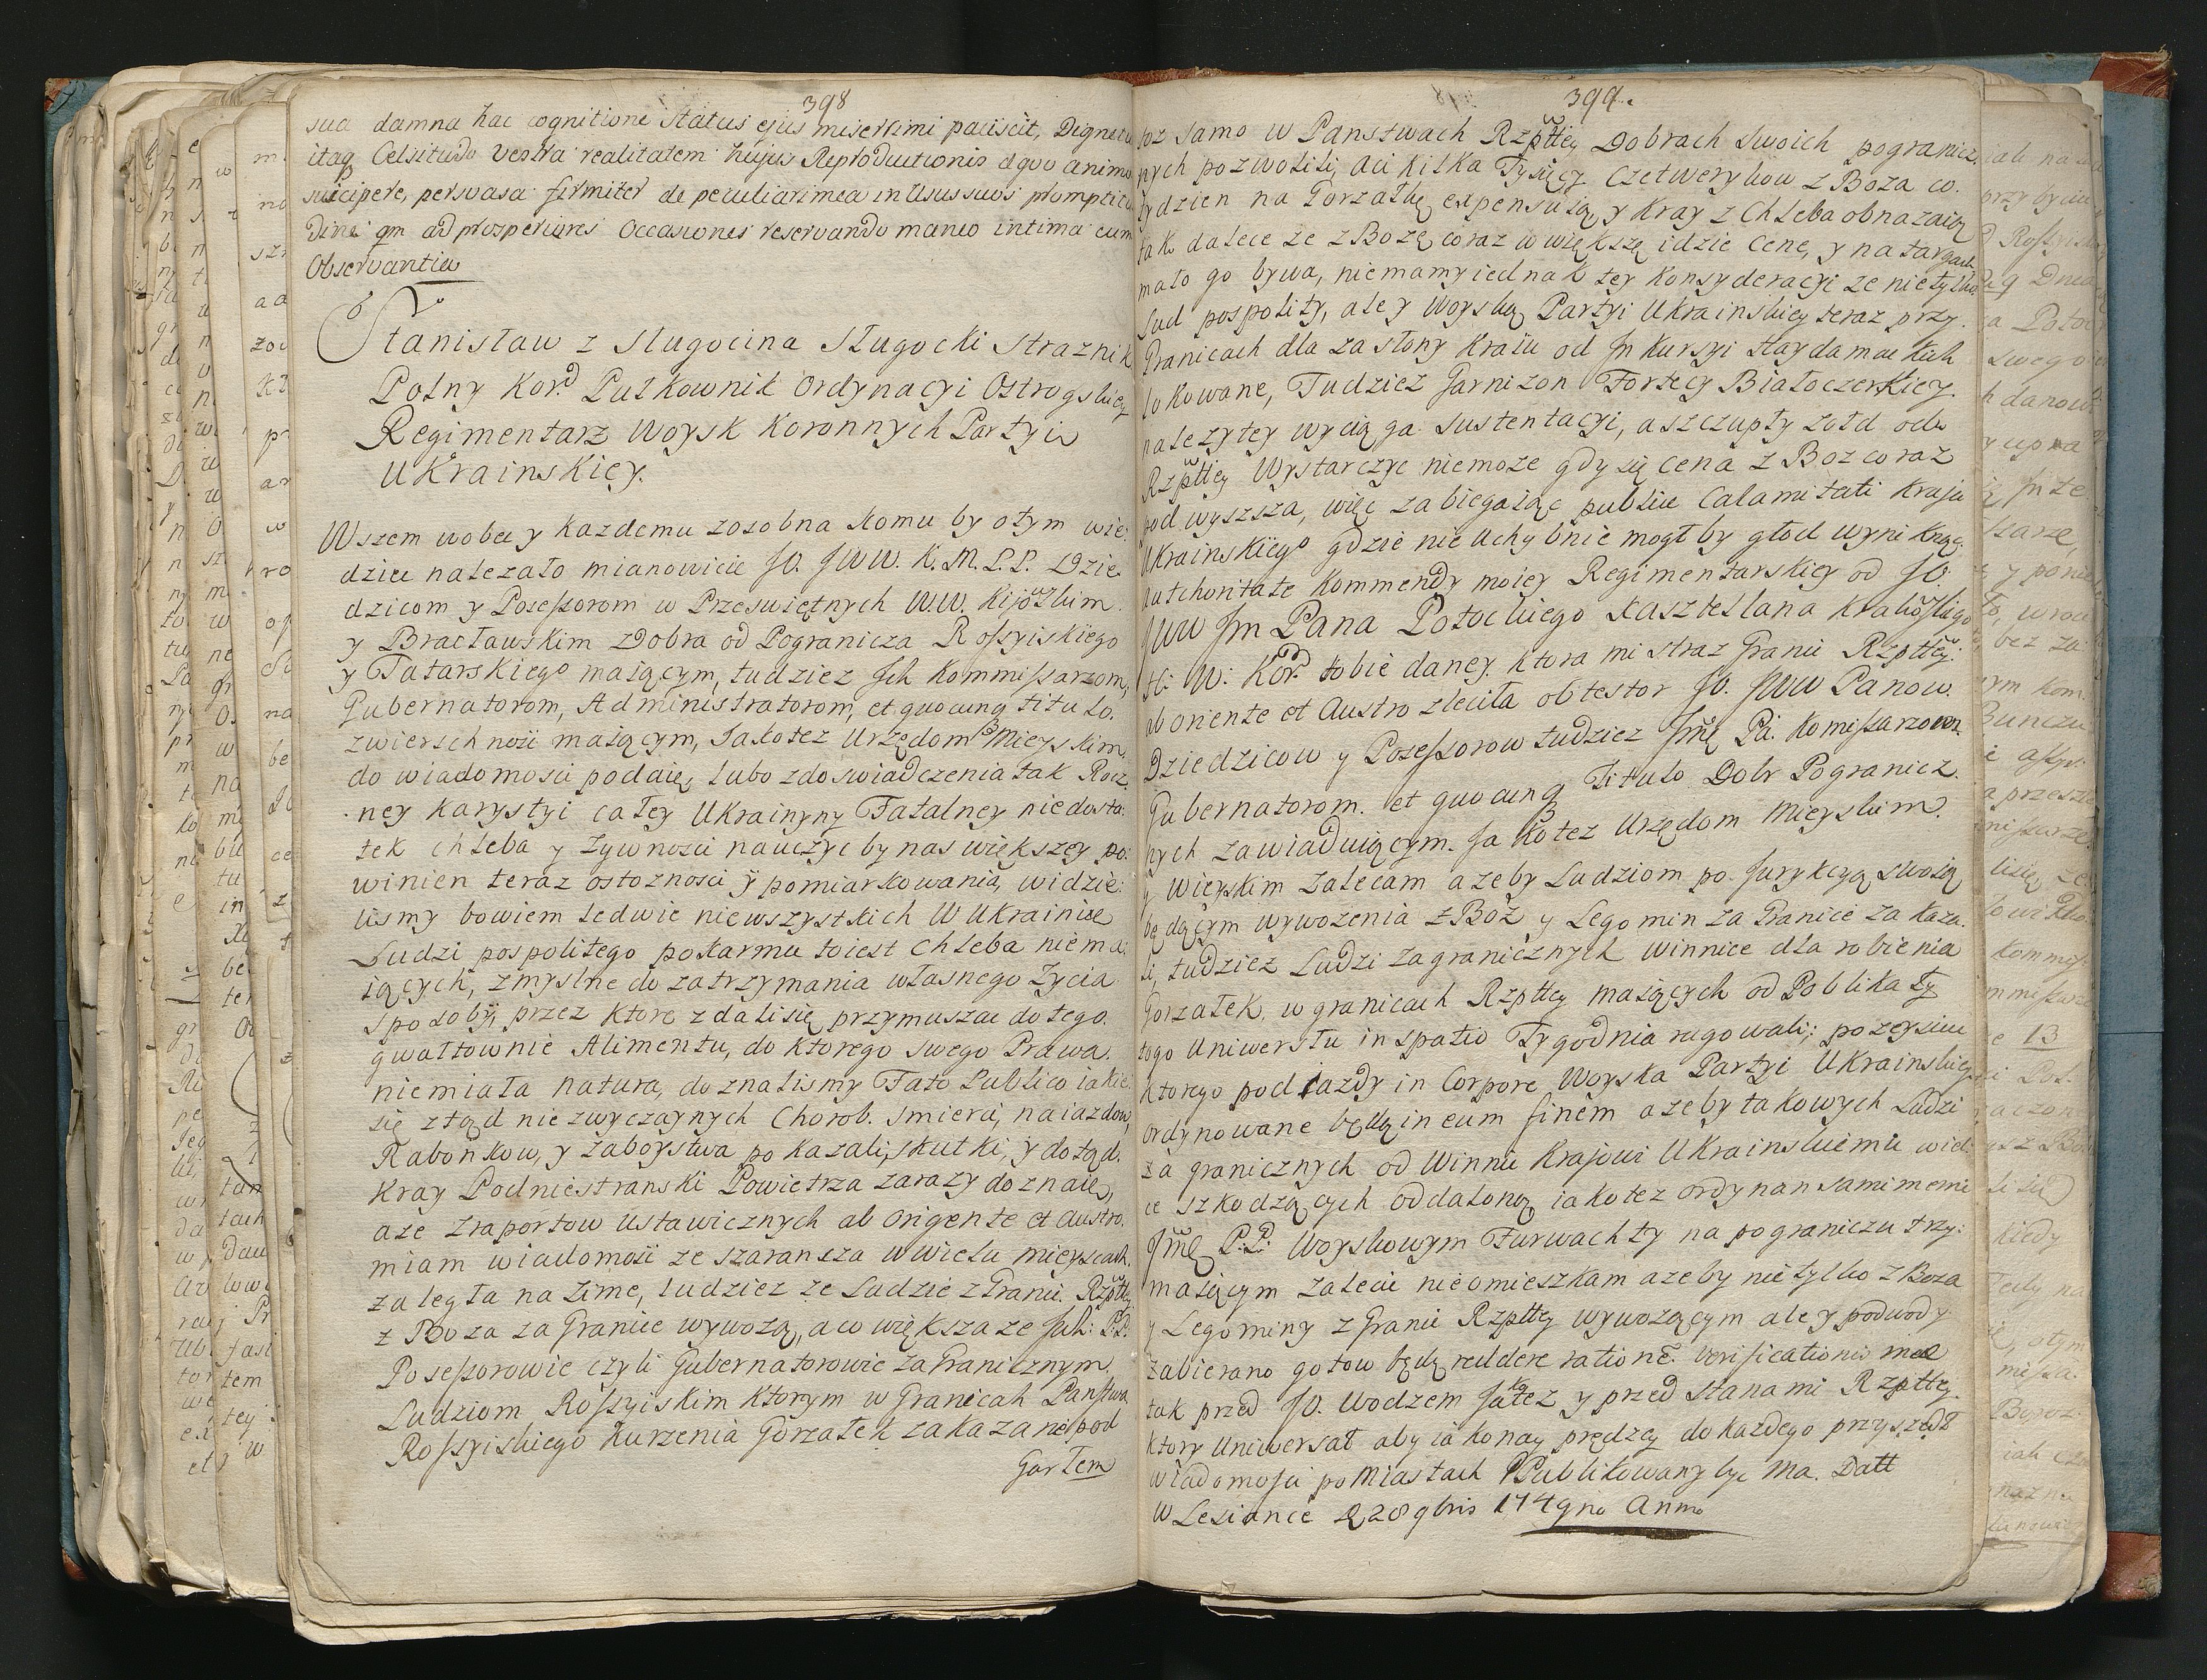 398
sua damna hac cognitione Status ejus miserrimi paciscit, Dignetur
itaq Celsitudo Vestra realitatem hujus Reproductionis æquo animo
suscipere, perswasa firmiter de peculiari mea in Usus suos promptitu
dine qm ad prosperiores Occasiones reservando maneo intima cum
Observantia
Stanisław z Sługocina Sługocki Straznik
Polny Kor. Pułkownik Ordynacyi Ostrogskiey
Regimentarz Woysk Koronnych Partyi
Ukrainskiey.
Wszem wobec y kazdemu zosobna komu by otym wie:
dziec nalezało mianowicie JO. JWW. K. M. P. P. Dzie
dzicom y Posessorom w Przeswiętnych W.W. Kijowskim
y Bracławskim zDobra od Pogranicza Rossyiskiego
y Tatarskiego maiącym, tudziez Jch Kommissarzom,
Gubernatorom, Administratorom, et quocunq titulo.
zwierschnosci maiącym, Jakotez Urzędom Mieyskim
do wiadomosci podaię, lubo zdoswiadczenia tak Rocz
ney karystyi całey Ukrainyny Fatalney niedosta:
tek chleba y zywnosci nauczyc by nas większey po:
winien teraz ostoznosci y pomiarkowania, widzie:
lismy bowiem ledwie niewszystkich W Ukrainie
Ludzi pospolitego pokarmu toiest Chleba niema:
iących, zmyslne do zatrzymania własnego Zycia
sposoby, przez ktore zdali się przymuszac do tego
gwałtownie Alimentu, do ktorego swego Prawa
niemiała natura, doznalismy Fato Publico iakie
się ztąd niezwyczaynych Chorob. smierci, naiazdow,
Rabonkow, y Zaboystwa pokazali, skutki, y dotąd.
Kray Podniestranski Powietrza zarazy doznaie,
aze zraportow Ustawicznych ab Origente et Austro.
miam wiadomosc ze szarancza w wielu mieyscach.
zaległa na Zime, tudziez ze Ludzie zGranic. Rzptey
z Boza za Granice wywozą, a co większa ze Jch: P.P.
Posessorowie czyli Gubernatorowie zaGranicznym
Ludziom Rossyiskim ktorym w Granicah Panstwa
Rossyiskiego Kurzenia Gorzałek zakazane pod
Garłem
399.
toz samo w Panstwach Rzpttey Dobrach swoich pogranicz
nych pozwolili, aci kilka Tysięcy Czetwerykow z Boza co
tydzien na Gorzałkę expensuią, y kray z Chleba obnazaią
tak dalece ze zBoze coraz w większę idzie Cene, y na targach
mało go bywa, niemamy iednak tey Konsyderacyi ze nietylko
Lud pospolity, ale y Woysko Partyi Ukrainskiey teraz przy
Granicach dla zasłony Kraiu od Jnkursyi Haydamackich
lokowane, Tudziez Garnizon Fortecy Białoczerkiey.
nalezytey wyciąga sustentacyi, a szczupły zołd od
Rzpttey Wystarczyc niemoze gdy się cena z Boz coraz
podwyszsza, więc zabiegaiąc publicæ Calamitati kraju
Ukrainskiego gdzie nieuchybnie mogłby głod wyniknąc
authoritate Kommendy moiey Regimentarskiey od JO.
JWW Jm Pana Potockiego Kasztellana Krakowskiego
H: W: Kor. sobie daney. ktora mi straz Granic Rzpttey.
ab oriente et Austro zleciła obtestor JO. JWW Panow.
Dziedzicow y Posessorow tudziez Jmę Pa. Komissarzowm
Gubernatorom. et quocunq Titulo Dobr Pogranicz
nych zawiaduiącym. Jakotez Urzędom Mieyskim
y wieyskim zalecam azeby Ludziom po Jurykcyą swoią
będącym wywozenia z Boz y Legomin za Granice zakaza.
li, tudziez Ludzi Zagranicznych Winnice dla robienia
Gorzałek, w granicach Rzpttey maiących od Poblikaty
togo Uniwersłu in spatio Tygodnia rugowali; pozeysciu
ktorego podiazdy in Corpore Woyska Partyi Ukrainskiey
Ordynowane będą in eum finem azeby takowych Ludzi
za granicznych od Winnic Krajowi Ukrainskiemu wiel:
ce szkodzących oddalono, iakotez ordynansami memi
Jmę P.P. Woyskowym Furwachty na pograniczu trzy:
maiącym zalecic nieomieszkam azeby nietylko z Boza
y Legominy z Granic Rzpttey wywozącym ale y podwody
zabierano gotow będę reddere ratione. Verificationis meæ
tak przed JO. Wodzem Jakotez y przed Stanami Rzpttey.
ktory Uniwersał aby iakonay prędzey do kazdego przyszedł
wiadomosci po Miastach Publikowany byc Ma. Datt
W Lesiance D 28 9bris 1749no Anno